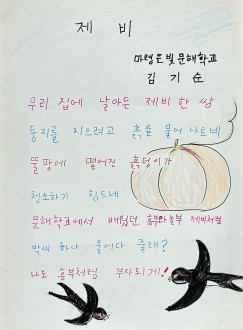 제 비
마령은빛문해학교
김 기 순
우리 집에 날아든 제비 한 쌍
둥지를 지으려고 흙을 물어 나르네
뜰팡에 떨어진 흙덩이가
청소하기 힘드네
문해학교에서 배웠던 흥부와 놀부 제비처럼
박씨 하나 물어다 줄래?
나도 흥부처럼 부자되게!